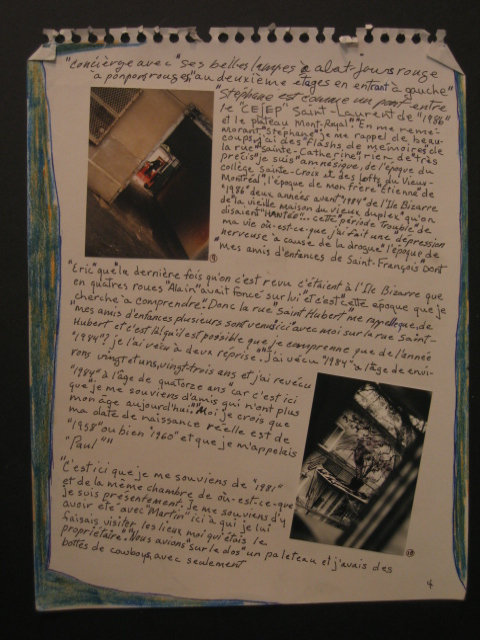 "concièrge avec "ses belles lampes à abat-jours rouge
à ponpons rouges," au deuxième étages en entrant à gauche"
"Stéphane est comme un pont entre
le "CEJEP" Saint-Laurent de "1986"
et le plateau Mont-Royal". En me remé-
morant "Stéphane" je me rappel de beau-
coups, j'ai des "flashs de mémoires de
la rue "Sainte-Catherine", rien de "très
précis" je suis "amnésique, de l'époque du
collège Sainte-Croix et des lofts du Vieux-
Montréal" l'époque de mon frère Étienne de
"1986" deux années avant "1984" de l'Ile Bizarre
de la vieille maison du vieux duplex" qu'on
disaient "HANTÉE"... cette période trouble" de
ma vie où-est-ce-que j'ai fait une "dépression
nerveuse" à cause de la drogue" l'époque de
"mes amis d'enfances de Saint-François" dont
"Eric" que la dernière fois qu'on c'est revu c'étaient à l'Ile Bizarre que
en quatres roues "Alain" avait foncé sur lui" et c'est cette époque que je
cherche à comprendre". Donc la rue Saint Hubert" me rappelle que, de
"mes amis d'enfances plusieurs sont venus ici avec moi sur la rue Saint-
Hubert et c'est là qu'il est possible que je comprenne que de l'année
"1984"? je l'ai vécu à deux reprise". "J'ai vécu "1984" à l'âge de envi-
rons vingt et uns, vingt-trois ans et j'ai revécu
"1984" à l'âge de quatorze ans" car c'est ici
que "je me souviens d'amis qui n'ont plus
mon âge aujourd'hui." "Moi je crois que
ma date de naissance réelle est de
"1958" ou bien "1960" et que je m'appelais
"Paul""
"C'est ici que je me souviens de "1981"
et de la même chambre de où-est-ce-que
je suis présentement. Je me souviens d'y
avoir été avec "Martin" ici à qui je lui
faisais visiter les lieux moi qui étais le
propriétaire." "Nous avions "sur le dos" un paleteau et j'avais des
bottes de cowboys, avec seulement
4